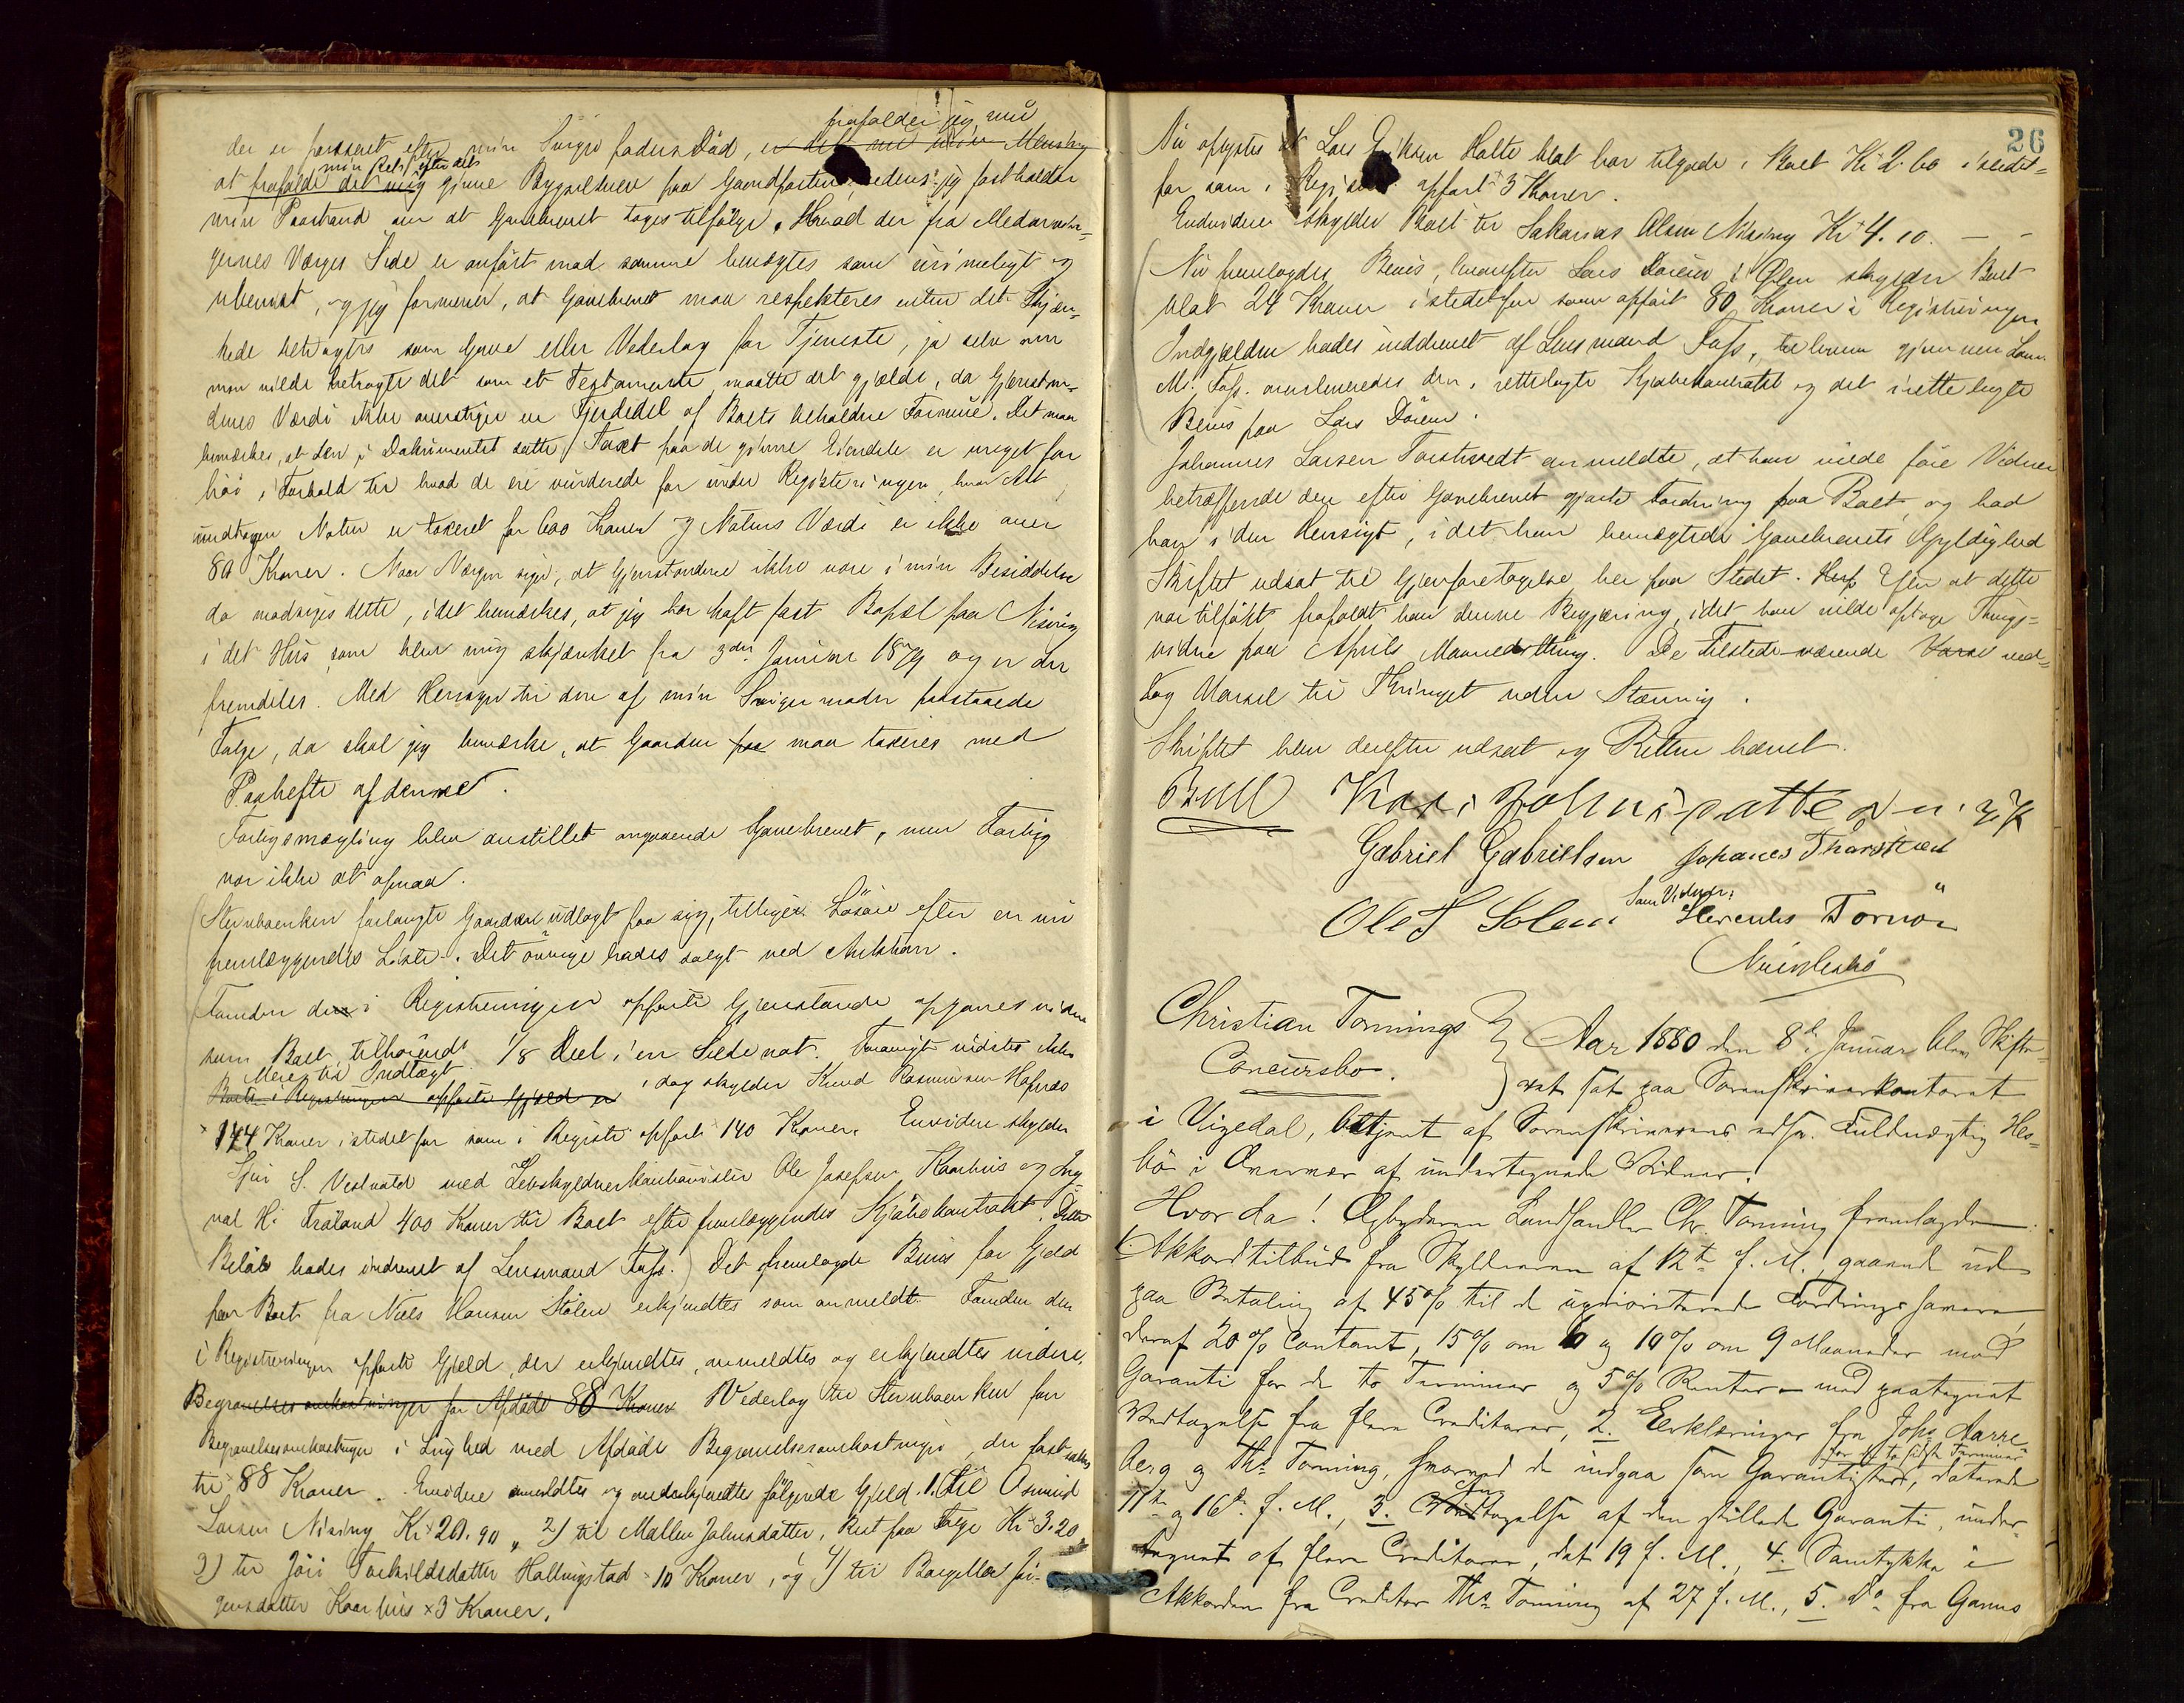 frafalder jeg nu
der er passeret efter min Svigerfaders Död, er det nu min Mening
min Ret efter det
at frafalde det mig givne Bygselbrev paa Gaardparten, medens jeg fastholder
min Paastand om at Gavebrevet tages tilfölge. Hvad der fra Medarvin-
gernes Værges Side er anfört mod samme benægtes som urimeligt og
ubevist, og jeg formener, at Gavebrevet maa respekteres enten det Skjæn-
kede betragtes som Gave eller Vederlag for Tjeneste, ja selv om
man vilde betragte det som et Testamente, maatte det gjælde, da Gjenstan-
denes Værdi ikke overstiger en Fjerdedel af Boets beholdne Formue. Det maa
bemærkes, at den i Dokumentet satte Taxt paa de givne Eiendele er meget for
höi i Forhold til hvad de ere vurderede for under Registeringen, hvor Alt
undtagen Noten er taxeret for 600 Kroner og Notens Værdi er ikke over
80 Kroner. Naar Værgen siger, at Gjenstandene ikke vare i min Besiddelse
da modsiges dette, idet bemærkes, at jeg har haft fast Bopæl paa Nising
i det Hus, som blev mig skjænket fra 3die Januar 1879 og er der
fremdeles. Med Hensyn til den af min Svigermoder paastaaede
Folge, da skal jeg bemærke, at Gaarden paa maa taxeres med
Paahefte af denne.
Forligsmægling blev anstillet angaaende Gavebrevet, men Forlig
var ikke at opnaa.
Stervboenken forlangte Gaarden udlagt paa sig, tilligemed Lösöre efter en nu
fremlæggendes Liste. Det övrige hades solgt ved Auktion.
Foruden de i Registeringen opförte Gjenstande opgaves videre
som Boet tilhörende 1/8 Deel i en Sildenot. Forövrigt vidstes ikke
Mere til Indtægt
Boets i Registeringen opförte Gjæld er i dag skylder Knud Rasmussen Hapnæs
144 Kroner istedetfor som i Registr. opfört 140 Kroner. Envidere skylder
Sjur S. Vestvold med Selvskyldnerkautionister Ole Josefsen Kaarhus og Ing-
val H. Fröland 400 Kroner til Boet efter fremlæggendes Kjöbekontrakt. Dette
Belöb hades inddrevet af Lensmand Fass. Det fremlagde Bevis for Gjæld
paa Boet fra Niels Hansen Stölen erkjendtes som anmeldt. Foruden den
i Registreringen opförte Gjæld, der erkjendtes, anmeldtes og erkjendtes videre,
Begravelsesomkostninger for Afdöde 88 Kroner Vederlag til Stervboenken for
Begravelsesomkostninger i Lighed med Afdödes Begravelsesomkostninger, der fastsattes
til 88 Kroner. Envidere anmeldtes og vederkjendtes fölgende Gjæld. 1. til Osmund
Larsen Nising Kr. 20.90, 2) til Malene Johnsdatter, Rest paa Folge Kr. 3.20
3) til Jöri Torkildsdatter Hallingstad 10 Kroner, og 4) til Borgilla Jör-
gensdatter Kaarhus 3 Kroner.
26
Nu oplystes at Lars Eriksen Halte blot har tilgode i Boet Kr. 2.60 istedet-
for som i Registr. opfört 3 Kroner.
Endvidere skylder Boet til Sakarias Olsen Nising Kr. 4.10.
Nu fremlagdes Bevis, hvorefter Lars Dörum i Ölen skylder Boet
blot 24 Kroner istedetfor som opfört 80 Kroner i Registreringen
Indgjælden hades inddrevet af Lensmand Fass, til hvem gjennem Lens-
M. Fass. overleveredes den i rettelagte Kjöbekontrakt og det irettelagte
Bevis paa Lars Dörum.
Johannes Larsen Torstvedt anmeldte, at han vilde före Vidner
betræffende den efter Gavebrevet gjorte Fordring paa Boet, og bad
han i den Hensigt, idet han benægtede Gavebrevets Gyldighed
Skiftet udsat til Gjenforetagelse her paa Stedet. Efter at dette
var tilfört frafaldt han denne Begjæring, idet han vilde optage Things-
vidne paa Aprils Maanedsthing. De tilstedeværende Varsl ved-
tog Varsel til Thinget uden Stævning.
Skiftet blev derefter udsat og Retten hævet.
Bull Kari Johnsdatter
Gabriel Gabrielsen Johanes Thorstved
Som Vidner:
Ole T Solem Hercules Tornön
Christian Tonnings
Concursbo.
Aar 1880 den 8de Januar blev Skifte-
ret sat paa Sorenskriverkontoret
i Vigedal, betjent af Sorenskriverens edsv. Fuldmægtig Hes-
bö i Overvær af undertegnede Vidner.
Hvor da! Opbyderen Landhandler Chr. Tonning fremlagde
1. Akkordtilbud fra Skyldneren af 12te f. M., gaaende ud
paa Betaling af 45% til de uprioriterede Fordringshavere
deraf 20% Contant, 15% om 6 og 10% om 9 Maaneder mod
Garanti for de to Terminer og 5% Renter – med paategnet
Vedtagelse fra flere Creditorer, 2. Erklæringer fra Johs Aarre-
for de to sidste Terminer
berg og Ths Tonning, hvorved de indgaa som Garantister, daterede
11te og 16de f. M., 3. Vedtagelse af den stillede Garanti, under-
tegnet af flere Creditorer, dat 19 f. M., 4. Samtykke i
Akkorden fra Creditor Ths Tonning af 27 f. M., 5. Do fra Gamms